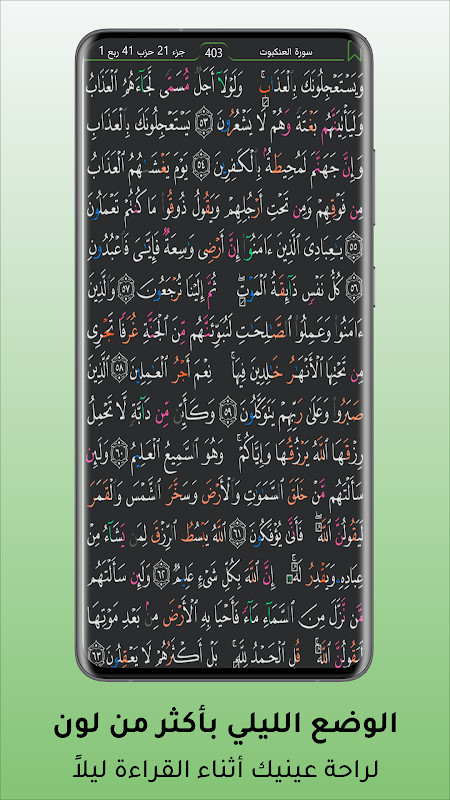 سورة العنكبوت 403 جزء 21 حزب 41 ربع 1
وَيَسْتَعْجِلُونَكَ بِٱلْعَذَابِ ۚ وَلَوْلَآ أَجَلٌ مُّسَمًّى لَّجَآءَهُمُ ٱلْعَذَابُ
وَلَيَأْتِيَنَّهُم بَغْتَةً وَهُمْ لَا يَشْعُرُونَ ٥٣ يَسْتَعْجِلُونَكَ بِٱلْعَذَابِ
وَإِنَّ جَهَنَّمَ لَمُحِيطَةٌۢ بِٱلْكَٰفِرِينَ ٥٤ يَوْمَ يَغْشَىٰهُمُ ٱلْعَذَابُ
مِن فَوْقِهِمْ وَمِن تَحْتِ أَرْجُلِهِمْ وَيَقُولُ ذُوقُوا۟ مَا كُنتُمْ تَعْمَلُونَ
٥٥ يَٰعِبَادِىَ ٱلَّذِينَ ءَامَنُوٓا۟ إِنَّ أَرْضِى وَٰسِعَةٌ فَإِيَّٰىَ فَٱعْبُدُونِ
٥٦ كُلُّ نَفْسٍ ذَآئِقَةُ ٱلْمَوْتِ ۖ ثُمَّ إِلَيْنَا تُرْجَعُونَ ٥٧ وَٱلَّذِينَ
ءَامَنُوا۟ وَعَمِلُوا۟ ٱلصَّٰلِحَٰتِ لَنُبَوِّئَنَّهُم مِّنَ ٱلْجَنَّةِ غُرَفًا تَجْرِى
مِن تَحْتِهَا ٱلْأَنْهَٰرُ خَٰلِدِينَ فِيهَا ۚ نِعْمَ أَجْرُ ٱلْعَٰمِلِينَ ٥٨ ٱلَّذِينَ
صَبَرُوا۟ وَعَلَىٰ رَبِّهِمْ يَتَوَكَّلُونَ ٥٩ وَكَأَيِّن مِّن دَآبَّةٍ لَّا تَحْمِلُ
رِزْقَهَا ٱللَّهُ يَرْزُقُهَا وَإِيَّاكُمْ ۚ وَهُوَ ٱلسَّمِيعُ ٱلْعَلِيمُ ٦٠ وَلَئِن
سَأَلْتَهُم مَّنْ خَلَقَ ٱلسَّمَٰوَٰتِ وَٱلْأَرْضَ وَسَخَّرَ ٱلشَّمْسَ وَٱلْقَمَرَ
لَيَقُولُنَّ ٱللَّهُ ۖ فَأَنَّىٰ يُؤْفَكُونَ ٦١ ٱللَّهُ يَبْسُطُ ٱلرِّزْقَ لِمَن يَشَآءُ مِنْ
عِبَادِهِۦ وَيَقْدِرُ لَهُۥٓ ۚ إِنَّ ٱللَّهَ بِكُلِّ شَىْءٍ عَلِيمٌ ٦٢ وَلَئِن سَأَلْتَهُم
مَّن نَّزَّلَ مِنَ ٱلسَّمَآءِ مَآءً فَأَحْيَا بِهِ ٱلْأَرْضَ مِنۢ بَعْدِ مَوْتِهَا
لَيَقُولُنَّ ٱللَّهُ ۚ قُلِ ٱلْحَمْدُ لِلَّهِ ۚ بَلْ أَكْثَرُهُمْ لَا يَعْقِلُونَ ٦٣
الوضع الليلي بأكثر من لون
لراحة عينيك أثناء القراءة ليلاً